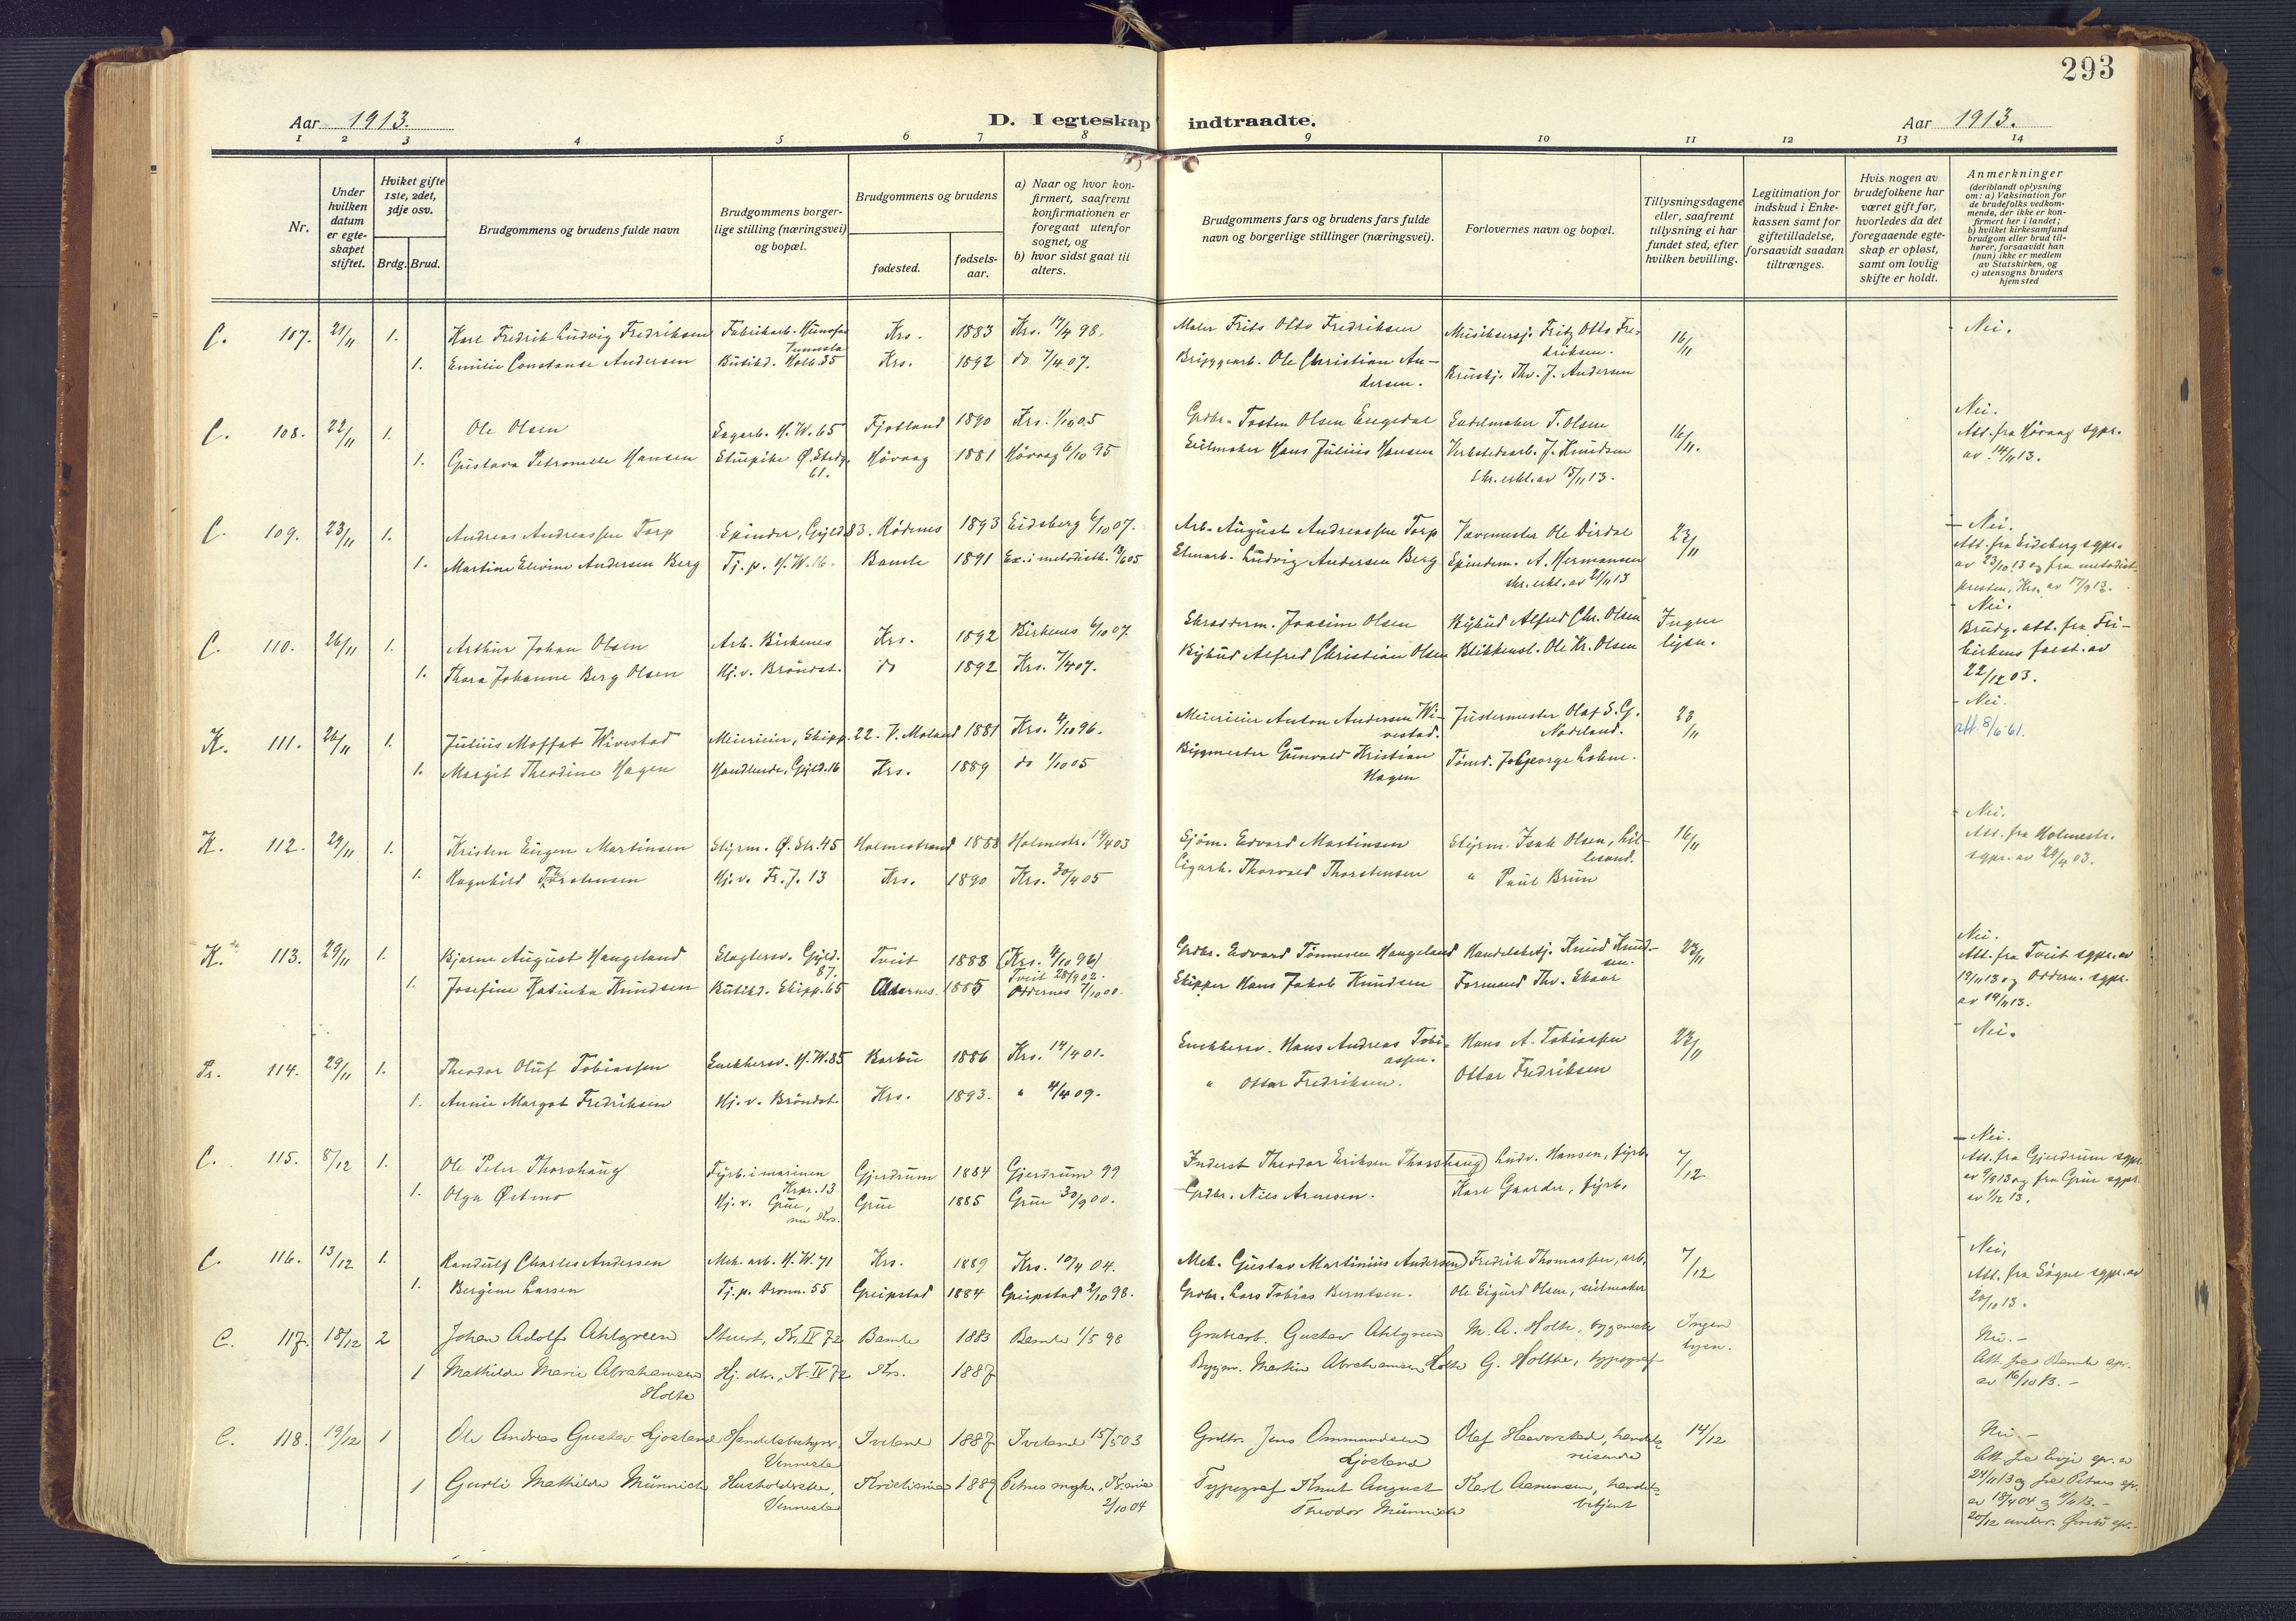 293
Aar 1913.
D. I egteskap indtraadte.
Aar 1913.
1 2 3 4 5 6 7 8 9 10 11 12 13 14
Nr.
Under hvilken datum er egteskapet stiftet.
Hviket gifte 1ste, 2det, 3dje osv.
Brdg. Brud.
Brudgommens og brudens fulde navn
Brudgommens borgerlige stilling (næringsvei) og bopæl.
Brudgommens og brudens
fødested.
fødselsaar.
a) Naar og hvor konfirmert, saafremt konfirmationen er foregaat utenfor sognet, og
b) hvor sidst gaat til alters.
Brudgommens fars og brudens fars fulde navn og borgerlige stillinger (næringsvei).
Forlovernes navn og bopæl.
Tillysningsdagene eller, saafremt tillysning ei har fundet sted, efter hvilken bevilling.
Legitimation for indskud i Enkekassen samt for giftetilladelse, forsaavidt saadan tiltrænges.
Hvis nogen av brudefolkene har været gift før, hvorledes da det foregaaende egteskap er opløst, samt om lovlig skifte er holdt.
Anmerkninger
(deriblandt oplysning om: a) Vaksination for de brudefolks vedkommende, der ikke er konfirmert her i landet; b) hvilket kirkesamfund brudgom eller brud tilhører, forsaavidt han (hun) ikke er medlem av Statskirken, og c) utensogns bruders hjemsted
C. 107. 21/11 1. Karl Fredrik Ludvig Fredriksen Fabrikarb. Hunsfos Vennesla Krs. 1883 Krs. 17/4 98. Maler Frits Otto Fredriksen Musikersj. Fritz Otto Fredriksen. 16/11 Nei.
1. Emilie Constanse Andersen Butikd. Holb. 35 Krs. 1892 do 7/4 07. Bryggearb. Ole Christian Andersen. Bruskj. Thv. J. Andersen
C. 108. 22/11 1. Ole Olsen Sagarb. H.W. 65 Fjotland 1890 Krs. 1/10 05 Grdbr. Tosten Olsen Engedal Sadelmaker T. Olsen 16/11. Nei.
Att. fra Høvaag sgpr. av 14/11 13.
1. Gustava Petronelle Hansen Stuepike Ø. Strdg. 61. Høvaag 1881 Høvaag 6/10 95 Seilmaker Hans Julius Hansen Verkstedsarb. J. Knudsen
Skr. erkl. av 15/11 13.
C. 109. 23/11 1. Andreas Andreassen Torp Spinder, Gyld. 83. Rødenes 1893 Eidsberg 6/10 07. Arb. August Andreassen Torp Vævemester Ole Dirdal 23/11 Nei.
Att. fra Eidsberg sgpr. av 23/10 13 og fra metodistpresten, Krs. av 17/9 13.
1. Martine Elevine Andersen Berg Tj. p. H.W. 16. Bamle 1891 Ex. i metodistk. Ludvig Andersen Berg Spindem. A. Hermansen
skr. erkl. av 21/11 13
C. 110. 26/11 1. Arthur Johan Olsen Arb. Birkenes Krs. 1892 Birkenes 6/10 07. Skradderm. Joacim Olsen Bybud Alfred Chr. Olsen Ingen lysn. Nei.
Brudg. att. fra Frikirkens forst. av 22/12 03.
1. Thora Johanne Berg Olsen Hj. v. Brøndst. do 1892 Krs. 7/4 07. Bybud Alfred Christian Olsen Blikkensl. Ole Kr. Olsen
K. 111. 26/11 1. Julius Moffat Wivestad Meierieier, Skipp. 22. V. Moland 1881 Krs. 4/10 96. Meierieier Anton Andersen Wivestad. Justermester Olaf S. G. Nodeland. 23/11 Nei.
att. 8/6 61.
1. Margit Theodine Hagen Handlende, Gyld. 16 Krs. 1889 do 1/10 05 Bygmester Gunvald Kristian Hagen Tømd. George Lohne.
K. 112. 29/11 1. Kristen Eugen Martinsen Styrm. Ø. Str. 45 Holmestrand 1888 Holmestr. 19/4 03 Sjøm. Edvard Martinsen Styrm. Isak Olsen, Lillesand. 16/11 Nei.
Att. fra Holmestr. sgpr. av 29/4 03.
1. Ragnhild Torstensen Hj. v. Fr. J. 13 Krs. 1890 Krs. 30/4 05 Cigarh. Thorvald Thorstensen " Paul Brun
K. 113. 29/11 1. Bjarne August Haugeland Slagtersv. Gyld. 87. Tveit 1888 (Krs. 4/10 96) Tveit 28/9 02. Grdbr. Edvard Tønnesen Haugeland Handelsbetj. Knud Knudsen. 23/11 Nei.
Att. fra Tveit sgpr. av 19/11 13 og Oddern. sgpr. av 14/11 13.
1. Josefine Katinka Knudsen Butikd. Skipp. 65 Oddernes. 1885 Oddernes 7/10 00. Skipper Hans Jakob Knudsen Formand Thv. Skaar
Pr. 114. 29/11 1. Theodor Oluf Tobiassen Snekkersv. H.W. 85 Barbu 1886 Krs. 14/4 01. Snekkersv. Hans Andreas Tobiassen. Hans A. Tobiassen 23/11 Nei.
1. Annie Margot Fredriksen Hj. v. Brøndst. Krs. 1893. " 4/4 09. " Ottar Fredriksen. Ottar Fredriksen
C. 115. 8/12 1. Ole Peter Thorshaug Fyrb. i marinen Krpr. 13 Gjerdrum 1884 Gjerdrum 99 Inderst Theodor Eriksen Thorshaug Ludv. Hansen, fyrb. 7/12 Nei.
Att. fra Gjerdrum sgpr. av 9/8 13 og fra Grue sgpr. av 1/12 13.
1. Olga Østmo Hj. v. Grue, nu Krs. Grue 1885 Grue 30/9 00. Grdbr. Nils Arnesen. Karl Gaarder, fyrb.
C. 116. 13/12 1. Randulf Charles Andersen Mek. arb. H.W. 71 Krs. 1889 Krs. 10/4 04. Mek. Gustav Martinius Andersen Fredrik Thomassen, arb. 7/12 Nei,
Att. fra Søgne sgpr. av 20/10 13.
1. Bergine Larsen Tj. p. Dronn. 55 Greipstad 1884 Greipstad 2/10 98. Grdbr. Lars Tobias Berntsen. Ole Sigurd Olsen, seilmaker
C. 117. 18/12 2 Johan Adolf Ahlgreen Stuert, K. IV 72 Bamle 1883 Bamle 1/5 98 Grubearb. Gustav Ahlgreen M. A. Holte, bygmester Ingen lysn. Nei.-
Att. fra Bamle spr. av 16/10 13.-
1 Mathilde Marie Abrahamsen Holte Hj. dtr., K. IV 72 Krs. 1887 Byggm. Martin Abrahamsen Holte G. Holthe, typograf
C. 118. 19/12 1 Ole Andreas Gustav Ljosland Handelsbestyrer, Vennesla Iveland 1887 Iveland 15/5 03 Grdbr. Jens Ommundsen Ljosland Olaf Haavorstad, handelsreisende 14/12 Nei.-
Att. fra Evje spr. av 24/11 13 og fra Petrus spr. av 18/4 04
1 Gurli Mathilde Münnich Husholderske, Vennesla Kristiania 1889 Petrus mgh., Kr.ania 2/10 04 Typograf Knut August Theodor Münnich Karl Aanensen, handelsbetjent